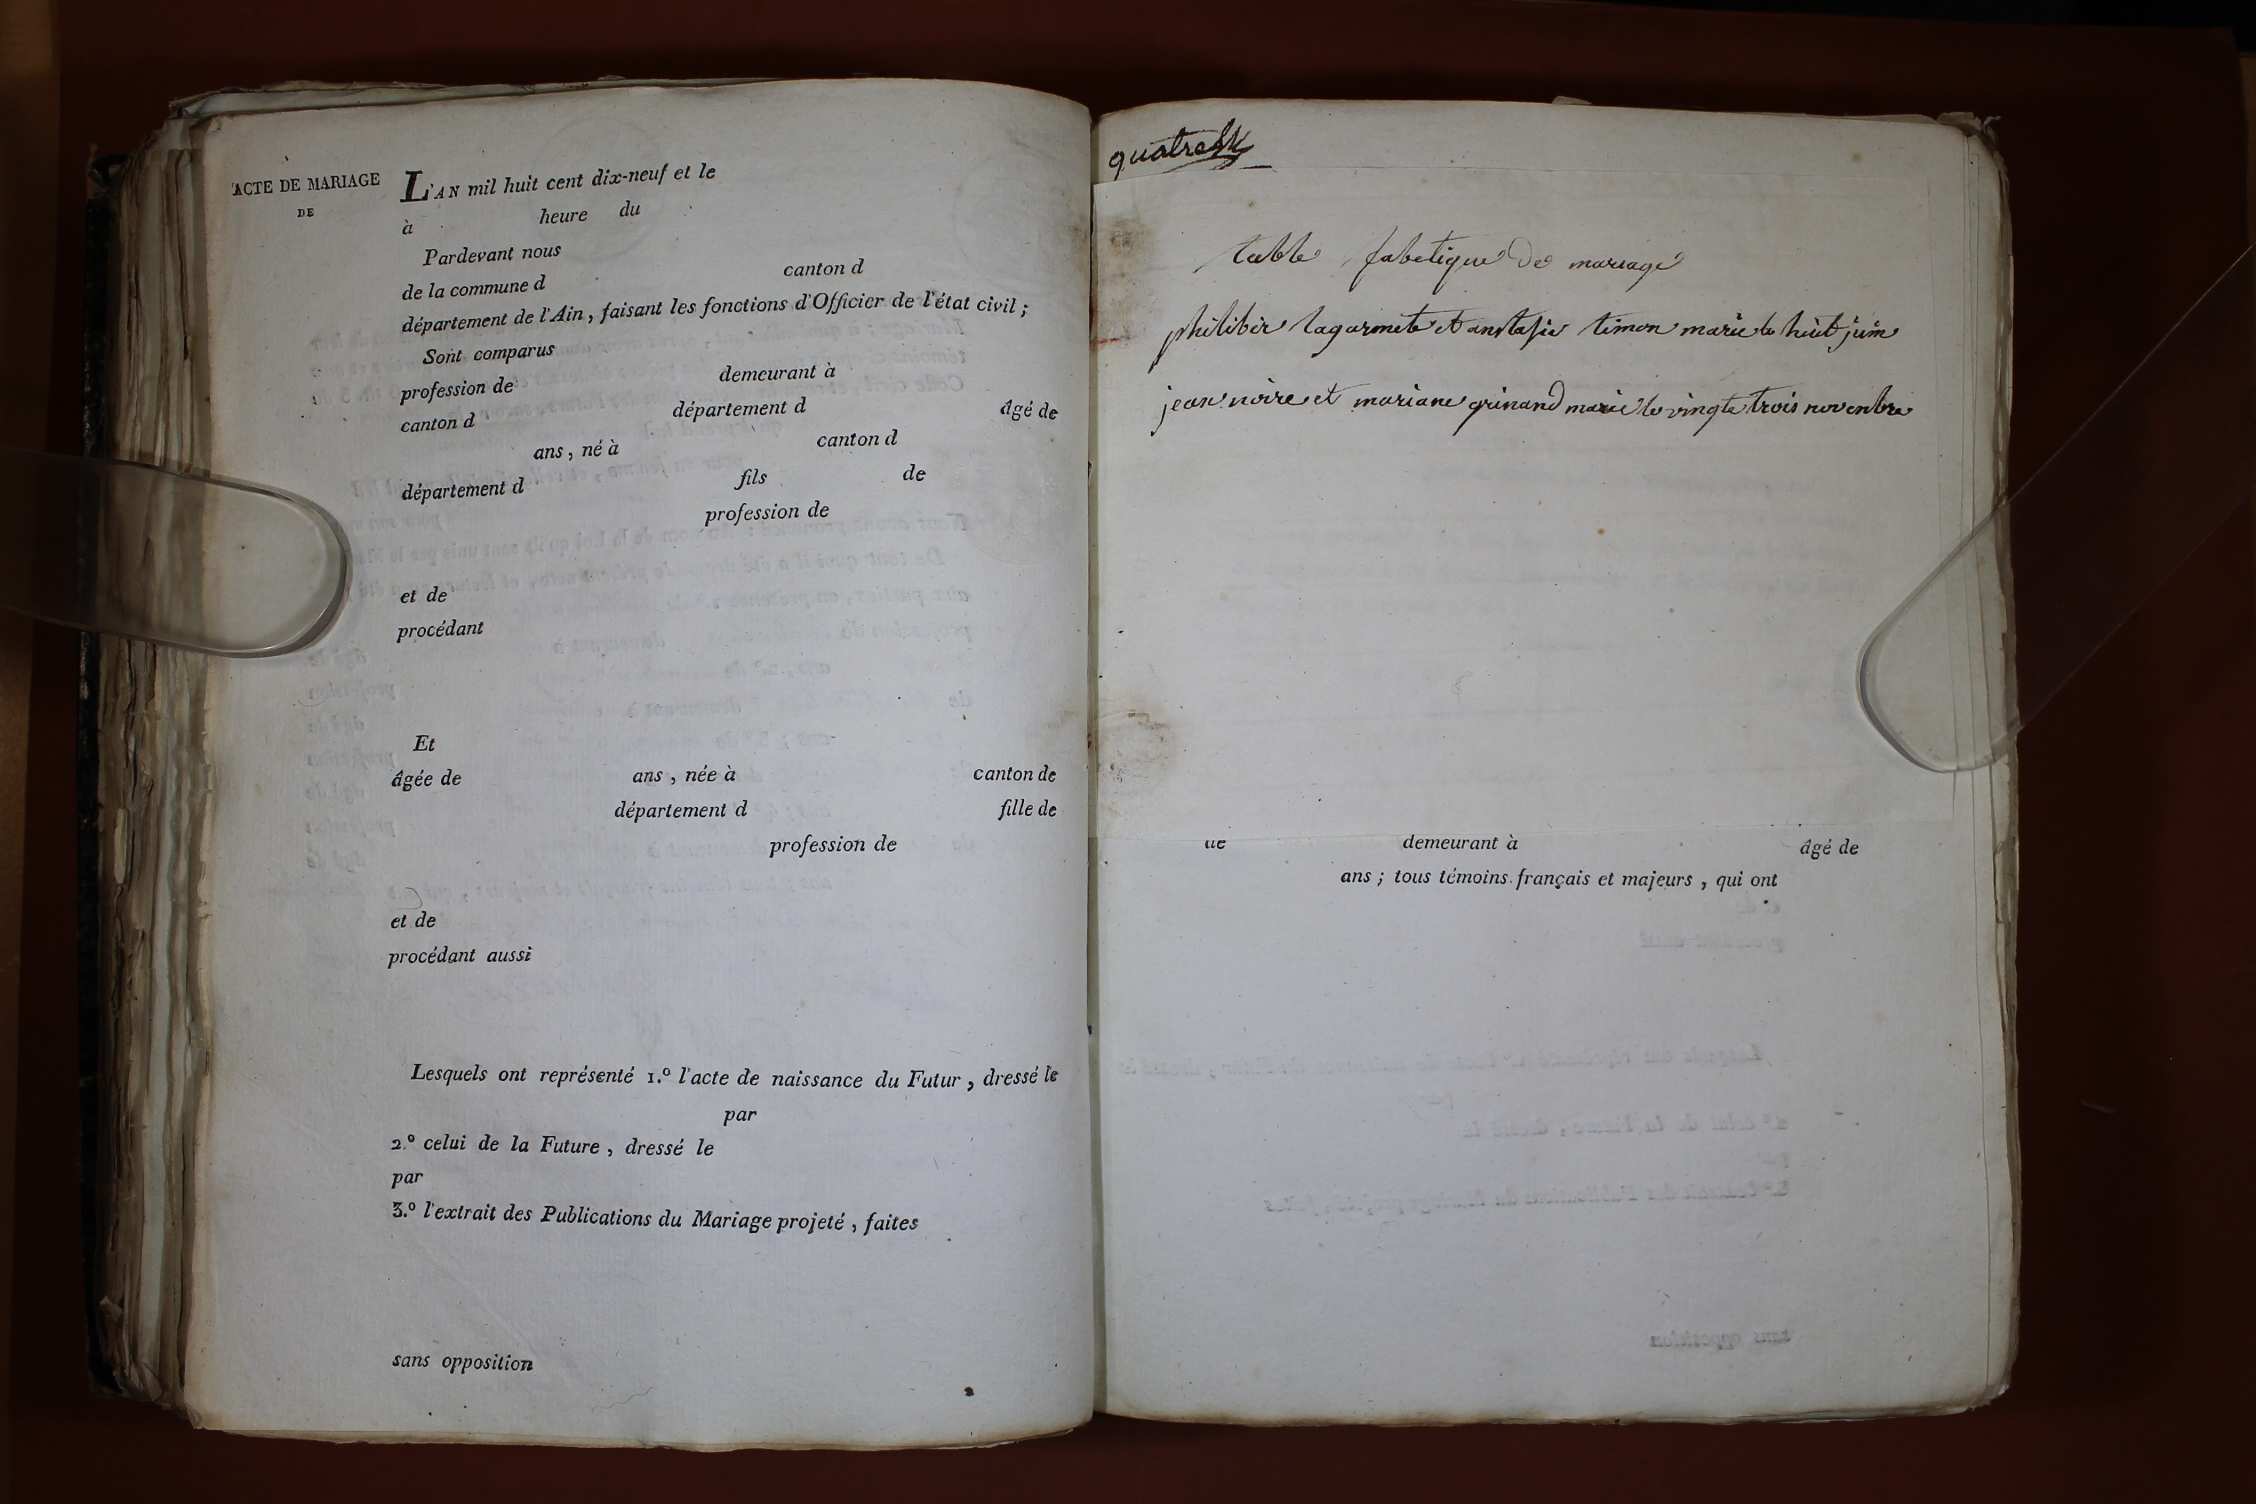 ACTE DE MARIAGE
DE
L'AN mil huit cent dix-neuf et le
à heure du
Pardevant nous
de la commune d canton d
département de l'Ain, faisant les fonctions d'Officier de l'état civil;
Sont comparus
profession de demeurant à
canton d département d âgé de
ans, né à canton d
département d fils de
profession de
et de
procédant
Et
âgée de ans, née à canton de
département d fille de
profession de
et de
procédant aussi
Lesquels ont représenté 1.º l'acte de naissance du Futur, dressé le
par
2.º celui de la Future, dressé le
par
3.º l'extrait des Publications du Mariage projeté, faites
sans opposition
quatre
table fabetique de mariage
philiber lagarmete et anstasie timon marie le huit juin
jean noire et mariane grinand marie le vingte trois novenbre
de demeurant à âgé de
ans; tous témoins français et majeurs, qui ont